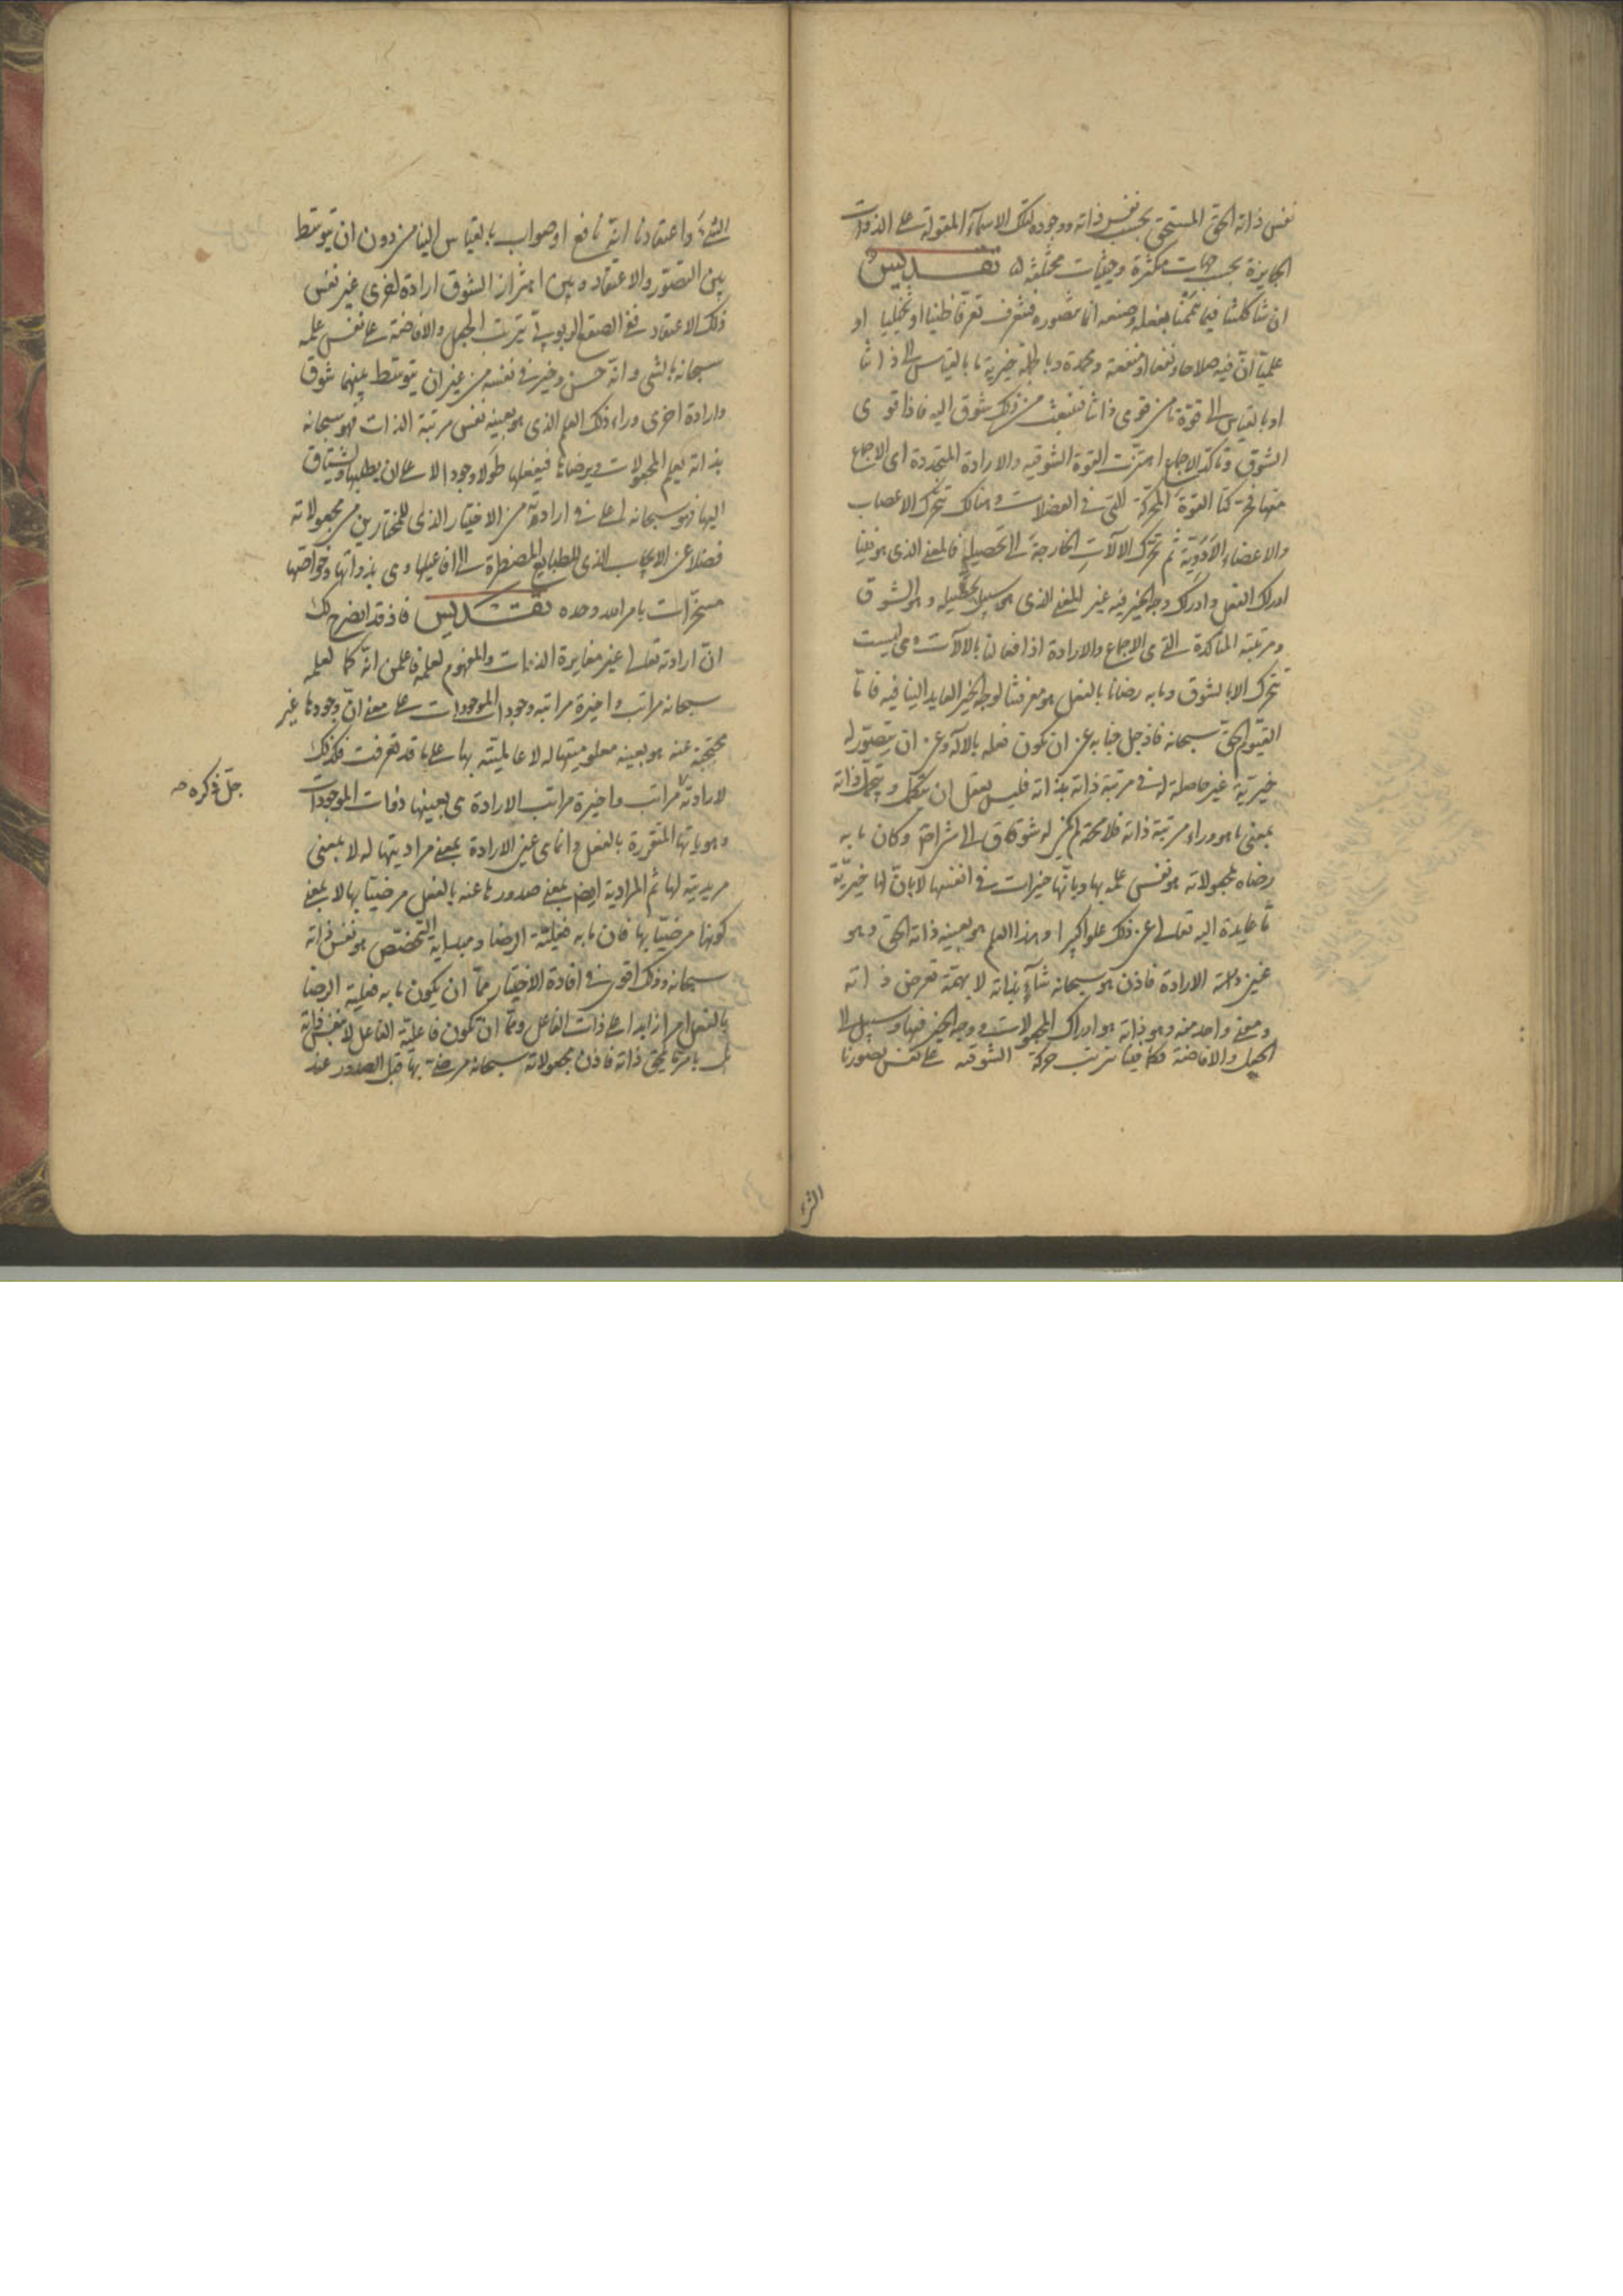 نفس ذاته الحق المستحق بحسب نفس ذاته ووجوده لتلك الاسمآء المقولة على الذوات
الجايزة بحسب جهات متكثرة وحيثيات مختلفة تقديس
ان شاكلتنا فيما نحن بفعله وصنعه انا نتصوره فنتعرف تعرفا ظنيا او تخيليا او
علميا ان فيه صلاحا ونفعا او منفعة ومحمدة وبالجملة خيرية ما بالقياس الى ذاتنا
او بالقياس الى قوة ما من قوى ذاتنا فينبعث من ذلك شوق اليه فاذا قوى
الشوق وتأكد الاجماع اهتزت القوة الشوقيه والارادة المتجددة اى الاجماع
منها فحركتا القوة المحركة التى فى العضلات وهنالك تتحرك الاعصاب
والاعضاء الادوية ثم تتحرك الالات الخارجة الى تحصيله فالمعنى الذى هو فينا
ادراك الفعل وادراك وجه الخير فيه غير المعنى الذى هو سبيل تحصيله وهو الشوق
ومرتبته المتاكدة التى هى الاجماع والارادة اذ افعالنا بالالات وهى ليست
تتحرك الا بالشوق وما به رضانا بالفعل هو معرفتنا لوجه الخير العايد الينا فيه فاما
القيوم الحق سبحانه فاذ جل جنابه عن ان يكون فعله بالآلة وعن ان يتصور له
خيرية غير حاصلة له فى مرتبة ذاته بذاته فليس يعقل ان يتكمل ويتجمل ذاته
بمعنى ما هو وراء مرتبة ذاته فلا محة لم يكن له شوق الى شىء اصلا وكان ما به
رضاه لمجعولاته هو نفس علمه بها وبانها خيرات فى انفسها لا بان لها خيرية
ما عايدة اليه تعالى عن ذلك علوا كبيرا وهذا العلم هو بعينه ذاته الحق وهو
عين ذاته الارادة فاذن هو سبحانه شاء بذاته لا بهمة تعرض ذاته
ومعنى واحد منه وهو ذاته هو ادراك المجعولات ووجه الخير فيها وسبيل الى
الجعل والافاضة فكما فينا تترتب حركة الشوقيه على نفس تصورنا
الشىء
الشىء واعتقادنا انه نافع او صواب بالقياس الينا من دون ان يتوسط
بين التصور والاعتقاد وبين اهتزاز الشوق ارادة اخرى غير نفس
ذلك الاعتقاد ففى الصقع الربوبى تترتب الجعل والافاضة على نفس علمه
سبحانه بالشى وانه حسن وخير فى نفسه من غير ان يتوسط بينهما شوق
وارادة اخرى وراء ذلك العلم الذى هو بعينه نفس مرتبة الذات فهو سبحانه
بذاته يعلم المجعولات ويرضاها فيفعلها طولا وجودا لا على ان يطلبها ويشتاق
اليها فهو سبحانه اعلى فى ارادته من الاختيار الذى للمختارين من مجعولاته
فضلا عن الايجاب الذى للطبايع المضطرة الى افاعيلها وهى بذواتها وخواصها
مسخرات بامر الله وحده تقديس فاذ قد اتضح لك
ان ارادته تعالى غير مغايرة الذات والمفهوم لعلمه فاعلمن انه كما لعلمه
سبحانه مراتب واخيرة مراتبه وجود الموجودات على معنى ان وجودها غير
محتجبة عنه هو بعينه معلوميتها له لا عالميته بها على ما قد تعرفت فكذلك
لارادته مراتب واخيرة مراتب الارادة هى بعينها ذوات الموجودات
وهوياتها المتقررة بالفعل وانما هى عين الارادة بمعنى مراديتها له لا بمعنى
مريديته لها ثم المرادية ايضا بمعنى صدورها عنه بالفعل مرضيا بها لا بمعنى
كونها مرضيا بها فان ما به فعلية الرضا ومبدأية التخصص هو نفس ذاته
سبحانه وذلك اقوى فى افادة الاختيار مما ان يكون ما به فعلية الرضا
بالفعل امرا زايدا على ذات الفاعل ومما ان تكون فاعلية الفاعل لا بنفس ذاته
بل بامر ما يلحق ذاته فاذن مجعولاته سبحانه مرضاة بها قبل الصدور عند
جل ذكره صح